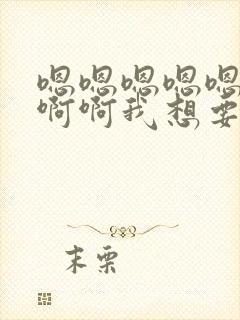 嗯嗯嗯嗯嗯
啊啊我想要
末栗